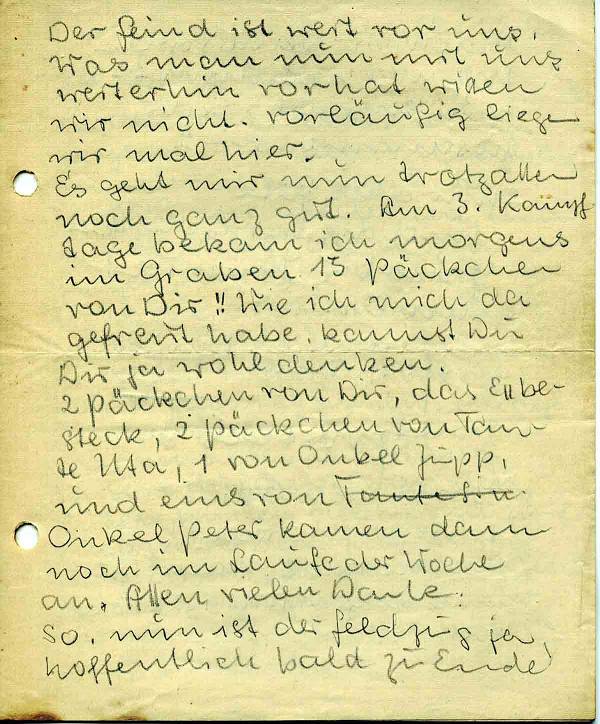 Der Feind ist weit vor uns.
Was man nun mit uns
weiterhin vorhat wissen
wir nicht. Vorläufig liegen
wir mal hier.
Es geht mir nun trotzallem
noch ganz gut. Am 3. Kampf
tage bekam ich morgens
im Graben 15 Päckchen
von Dir!! Wie ich mich da
gefreut habe, kannst Du
Dir ja wohl denken.
2 Päckchen von Dir, das Eßbe-
steck, 2 Päckchen von Tan-
te Uta, 1 von Onkel Jupp,
und eins von Tante
Onkel Peter kamen dann
noch im Laufe der Woche
an. Allen vielen Dank.
So, nun ist der Feldzug ja
hoffentlich bald zu Ende